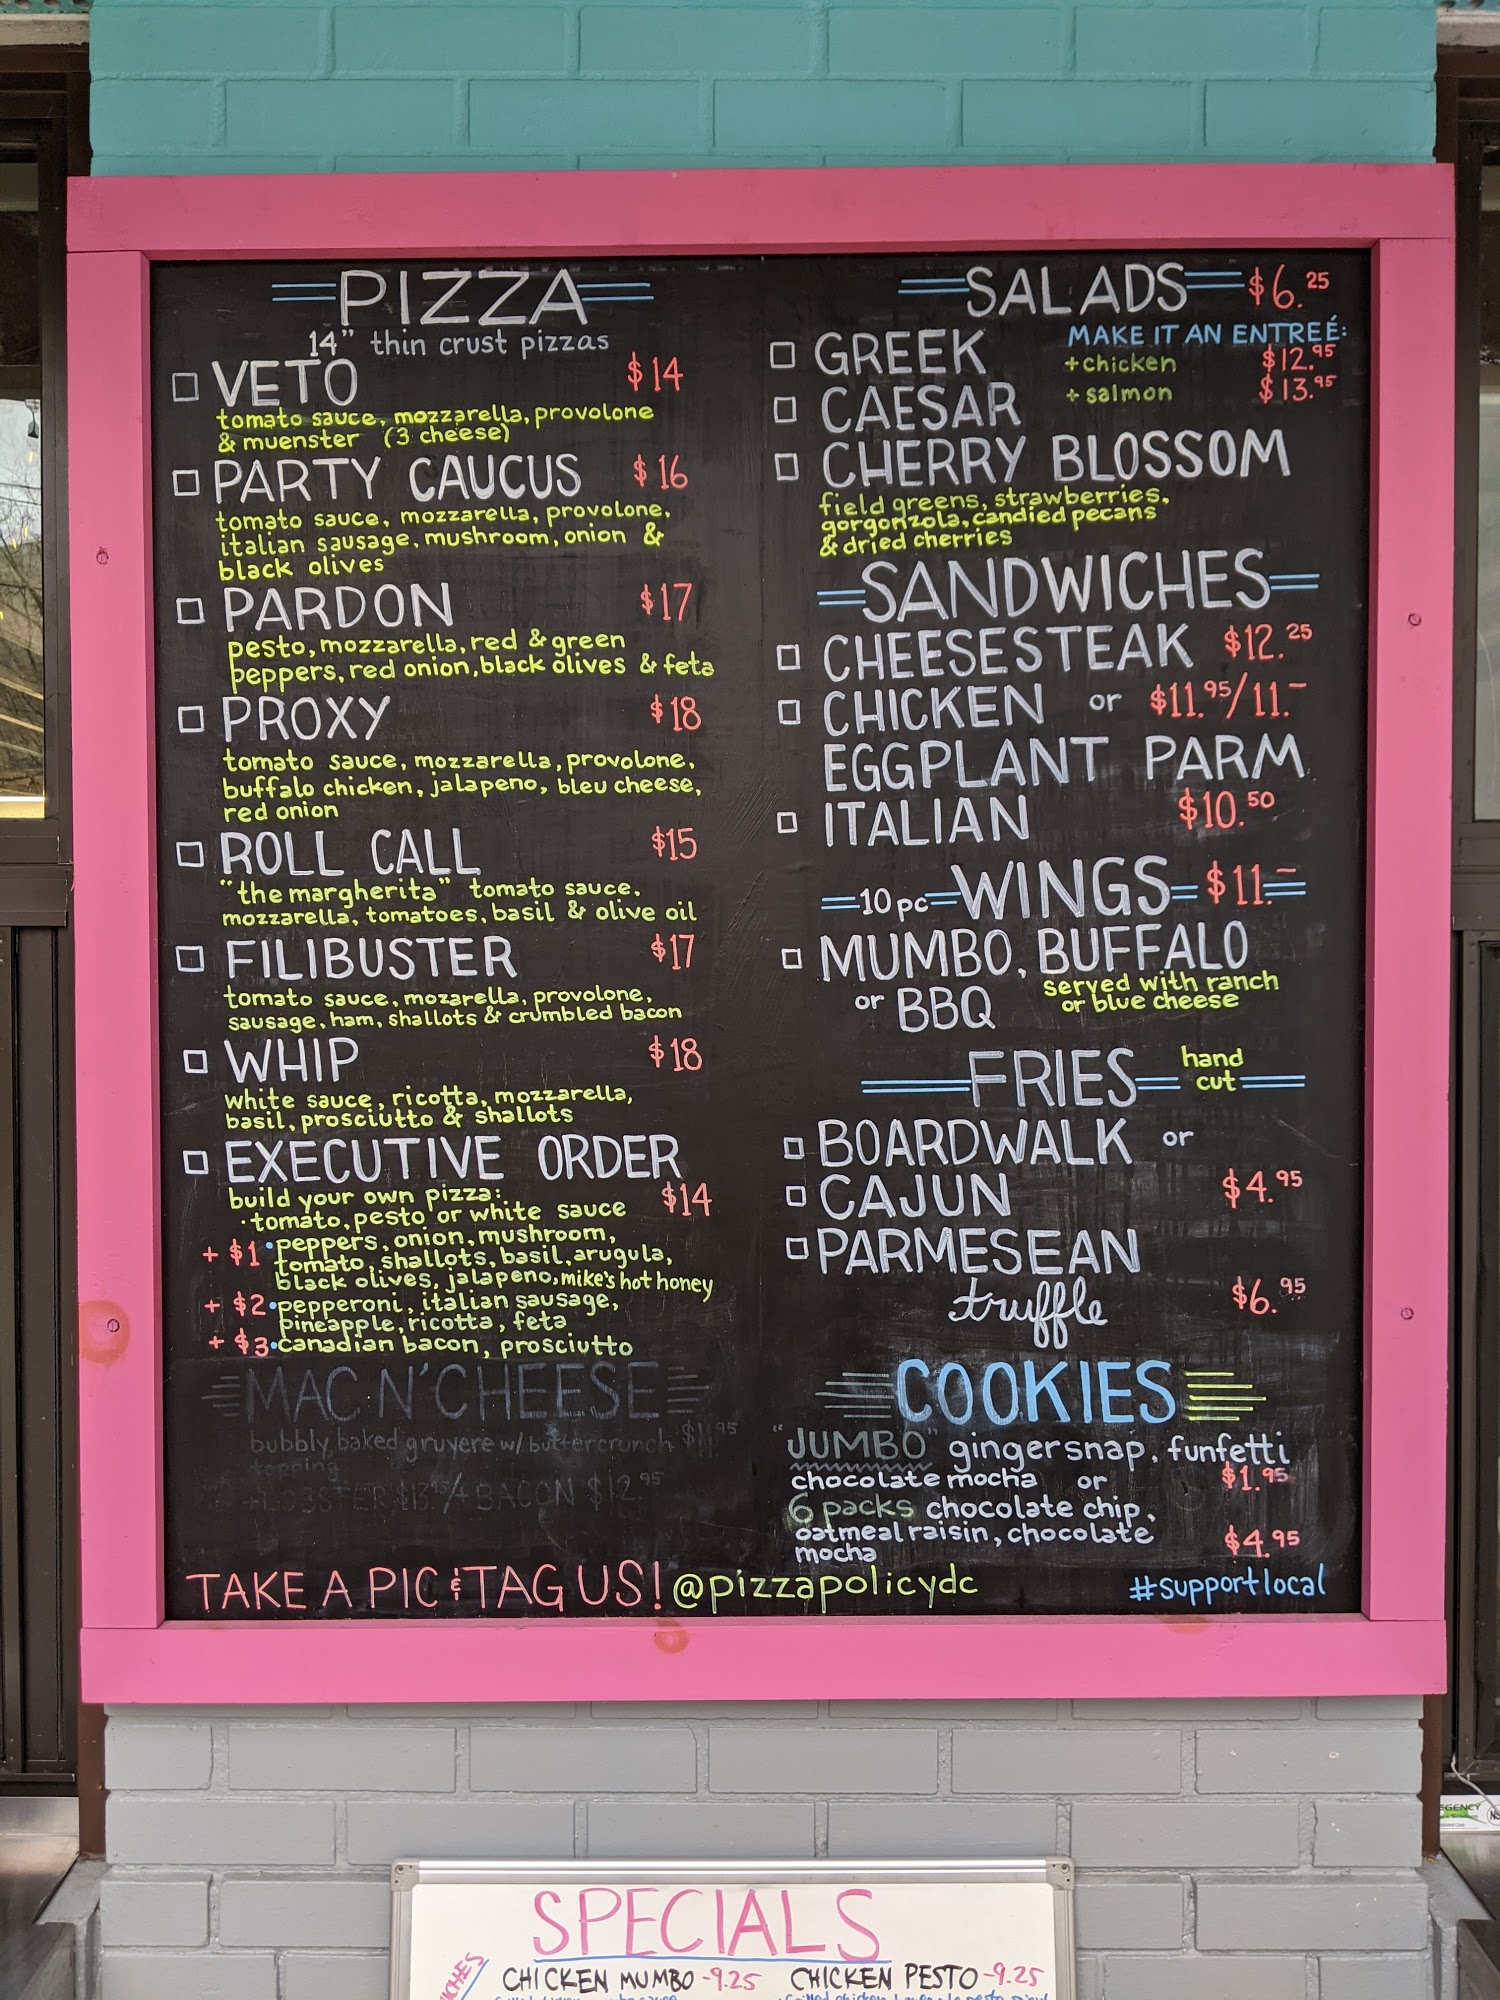 PIZZA
14" thin crust pizzas
VETO $14
tomato sauce, mozzarella, provolone
& muenster (3 cheese)
PARTY CAUCUS $16
tomato sauce, mozzarella, provolone,
italian sausage, mushroom, onion &
black olives
PARDON $17
pesto, mozzarella, red & green
peppers, red onion, black olives & feta
PROXY $18
tomato sauce, mozzarella, provolone,
buffalo chicken, jalapeno, bleu cheese,
red onion
ROLL CALL $15
"the margherita" tomato sauce,
mozzarella, tomatoes, basil & olive oil
FILIBUSTER $17
tomato sauce, mozarella, provolone,
sausage, ham, shallots & crumbled bacon
WHIP $18
white sauce, ricotta, mozzarella,
basil, prosciutto & shallots
EXECUTIVE ORDER
build your own pizza: $14
·tomato, pesto or white sauce
+ $1 •peppers, onion, mushroom,
tomato, shallots, basil, arugula,
black olives, jalapeno, mike's hot honey
+ $2 •pepperoni, italian sausage,
pineapple, ricotta, feta
+ $3 •canadian bacon, prosciutto
MAC N' CHEESE
bubbly, baked gruyere w/ buttercrunch $11.95
topping
+LOBSTER $13.95/+ BACON $12.95
SALADS $6.25
MAKE IT AN ENTREÉ:
GREEK +chicken $12.95
CAESAR + salmon $13.95
CHERRY BLOSSOM
field greens, strawberries,
gorgonzola, candied pecans
& dried cherries
SANDWICHES
CHEESESTEAK $12.25
CHICKEN or $11.95/11.–
EGGPLANT PARM
ITALIAN $10.50
10 pc WINGS $11.–
MUMBO, BUFFALO
or BBQ served with ranch
or blue cheese
FRIES hand
cut
BOARDWALK or
CAJUN $4.95
PARMESEAN
truffle $6.95
COOKIES
"JUMBO" gingersnap, funfetti
chocolate mocha or $1.95
6 packs chocolate chip,
oatmeal raisin, chocolate $4.95
mocha
TAKE A PIC & TAG US! @pizzapolicydc #supportlocal
SPECIALS
CHICKEN MUMBO -9.25 CHICKEN PESTO -9.25